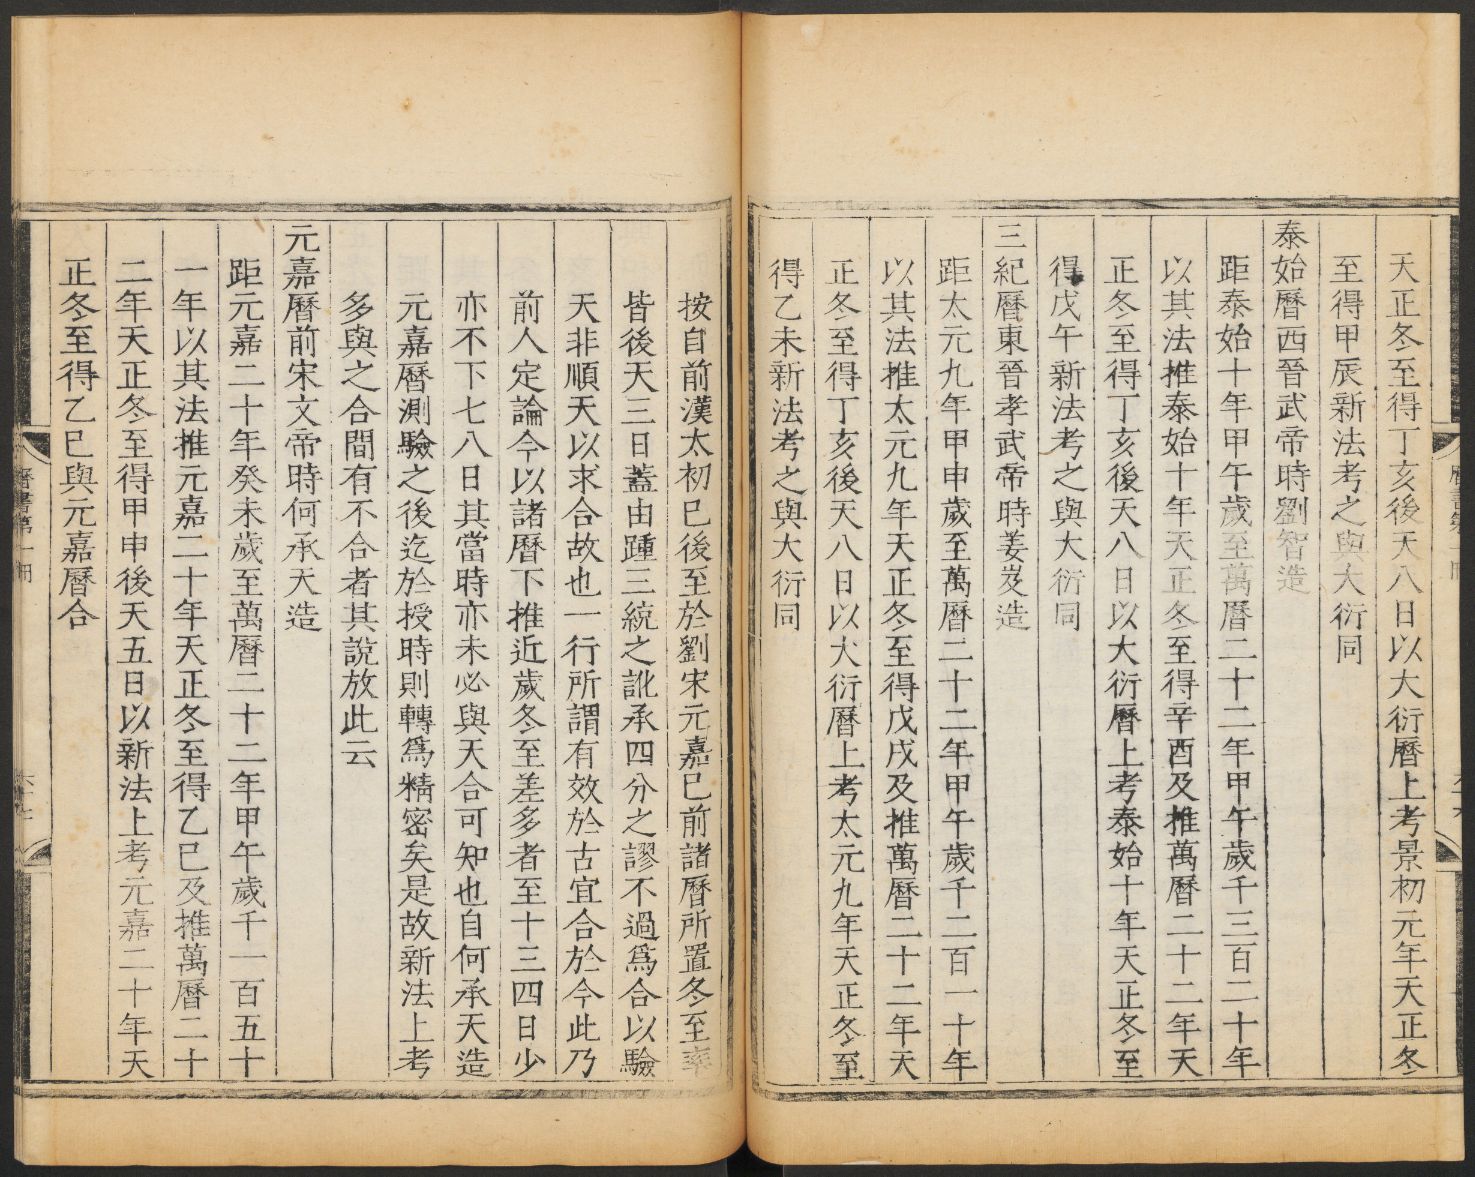 天正冬至得丁亥後天八日以大衍曆上考景初元年天正冬
至得甲辰新法考之與大衍同
泰始曆西晉武帝時劉智造
距泰始十年甲午歲至萬曆二十二年甲午歲千三百二十年
以其法推泰始十年天正冬至得辛酉及推萬曆二十二年天
正冬至得丁亥後天八日以大衍曆上考泰始十年天正冬至
得戊午新法考之與大衍同
三紀曆東晉孝武帝時姜岌造
距太元九年甲申歲至萬曆二十二年甲午歲千二百一十年
以其法推太元九年天正冬至得戊戌及推萬曆二十二年天
正冬至得丁亥後天八日以大衍曆上考太元九年天正冬至
得乙未新法考之與大衍同
按自前漢太初已後至於劉宋元嘉已前諸曆所置冬至率
皆後天三日蓋由踵三統之訛承四分之謬不過爲合以驗
天非順天以求合故也一行所謂有效於古宜合於今此乃
前人定論今以諸曆下推近歲冬至差多者至十三四日少
亦不下七八日其當時亦未必與天合可知也自何承天造
元嘉曆測驗之後迄於授時則轉爲精密矣是故新法上考
多與之合間有不合者其說放此云
元嘉曆前宋文帝時何承天造
距元嘉二十年癸未歲至萬曆二十二年甲午歲千一百五十
一年以其法推元嘉二十年天正冬至得乙巳及推萬曆二十
二年天正冬至得甲申後天五日以新法上考元嘉二十年天
正冬至得乙巳與元嘉曆合
曆書第一冊